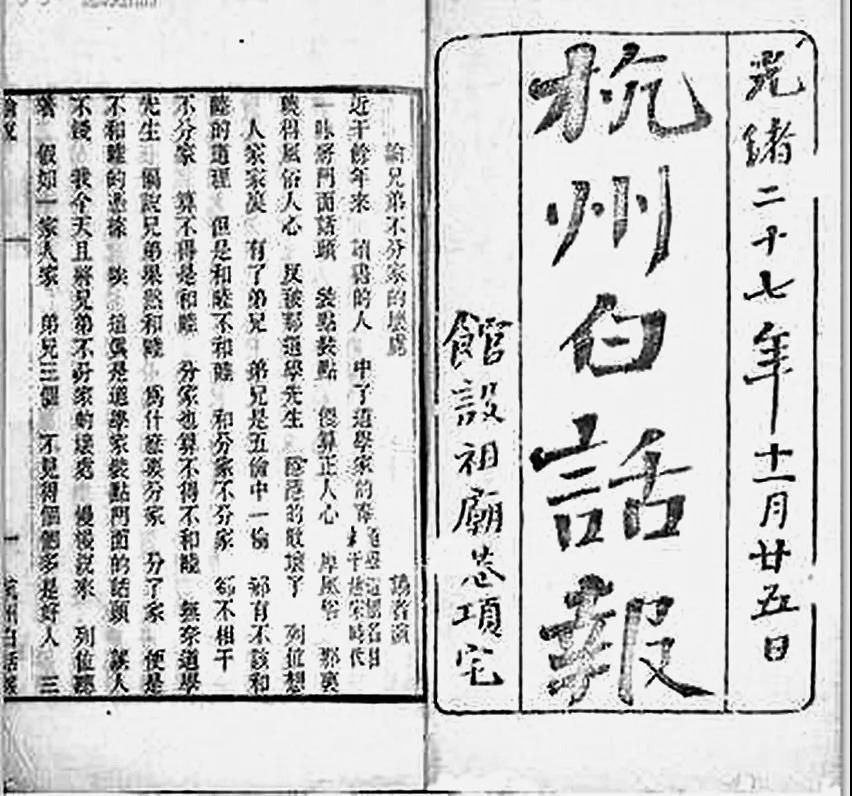 光緒二十七年十一月廿五日
杭州白話報
館設祖廟巷項宅
論兄弟不分家的壞處
近千餘年來　讀書的人　中了道學家的毒
一味將門面話頭　裝點裝點　便算正人心　厚風俗　那裏
曉得風俗人心　反被那道學先生　陰陰的敗壞了　列位想
人家家裏　有了弟兄　弟兄是五倫中一倫　那有不該和
睦的道理　但是和睦不和睦　和分家不分家　卻不相干
不分家　算不得是和睦　分家也算不得不和睦　無奈道學
先生　偏說兄弟果然和睦　爲什麽要分家　分了家　便是
不和睦的憑據　唉　這眞是道學家裝點門面的話頭　誤人
不淺　我今天且將兄弟不分家的壞處　慢慢說來　列位聽
著　假如一家人家　弟兄三個　不見得個個多是好人　三
論說
一
杭州白話報